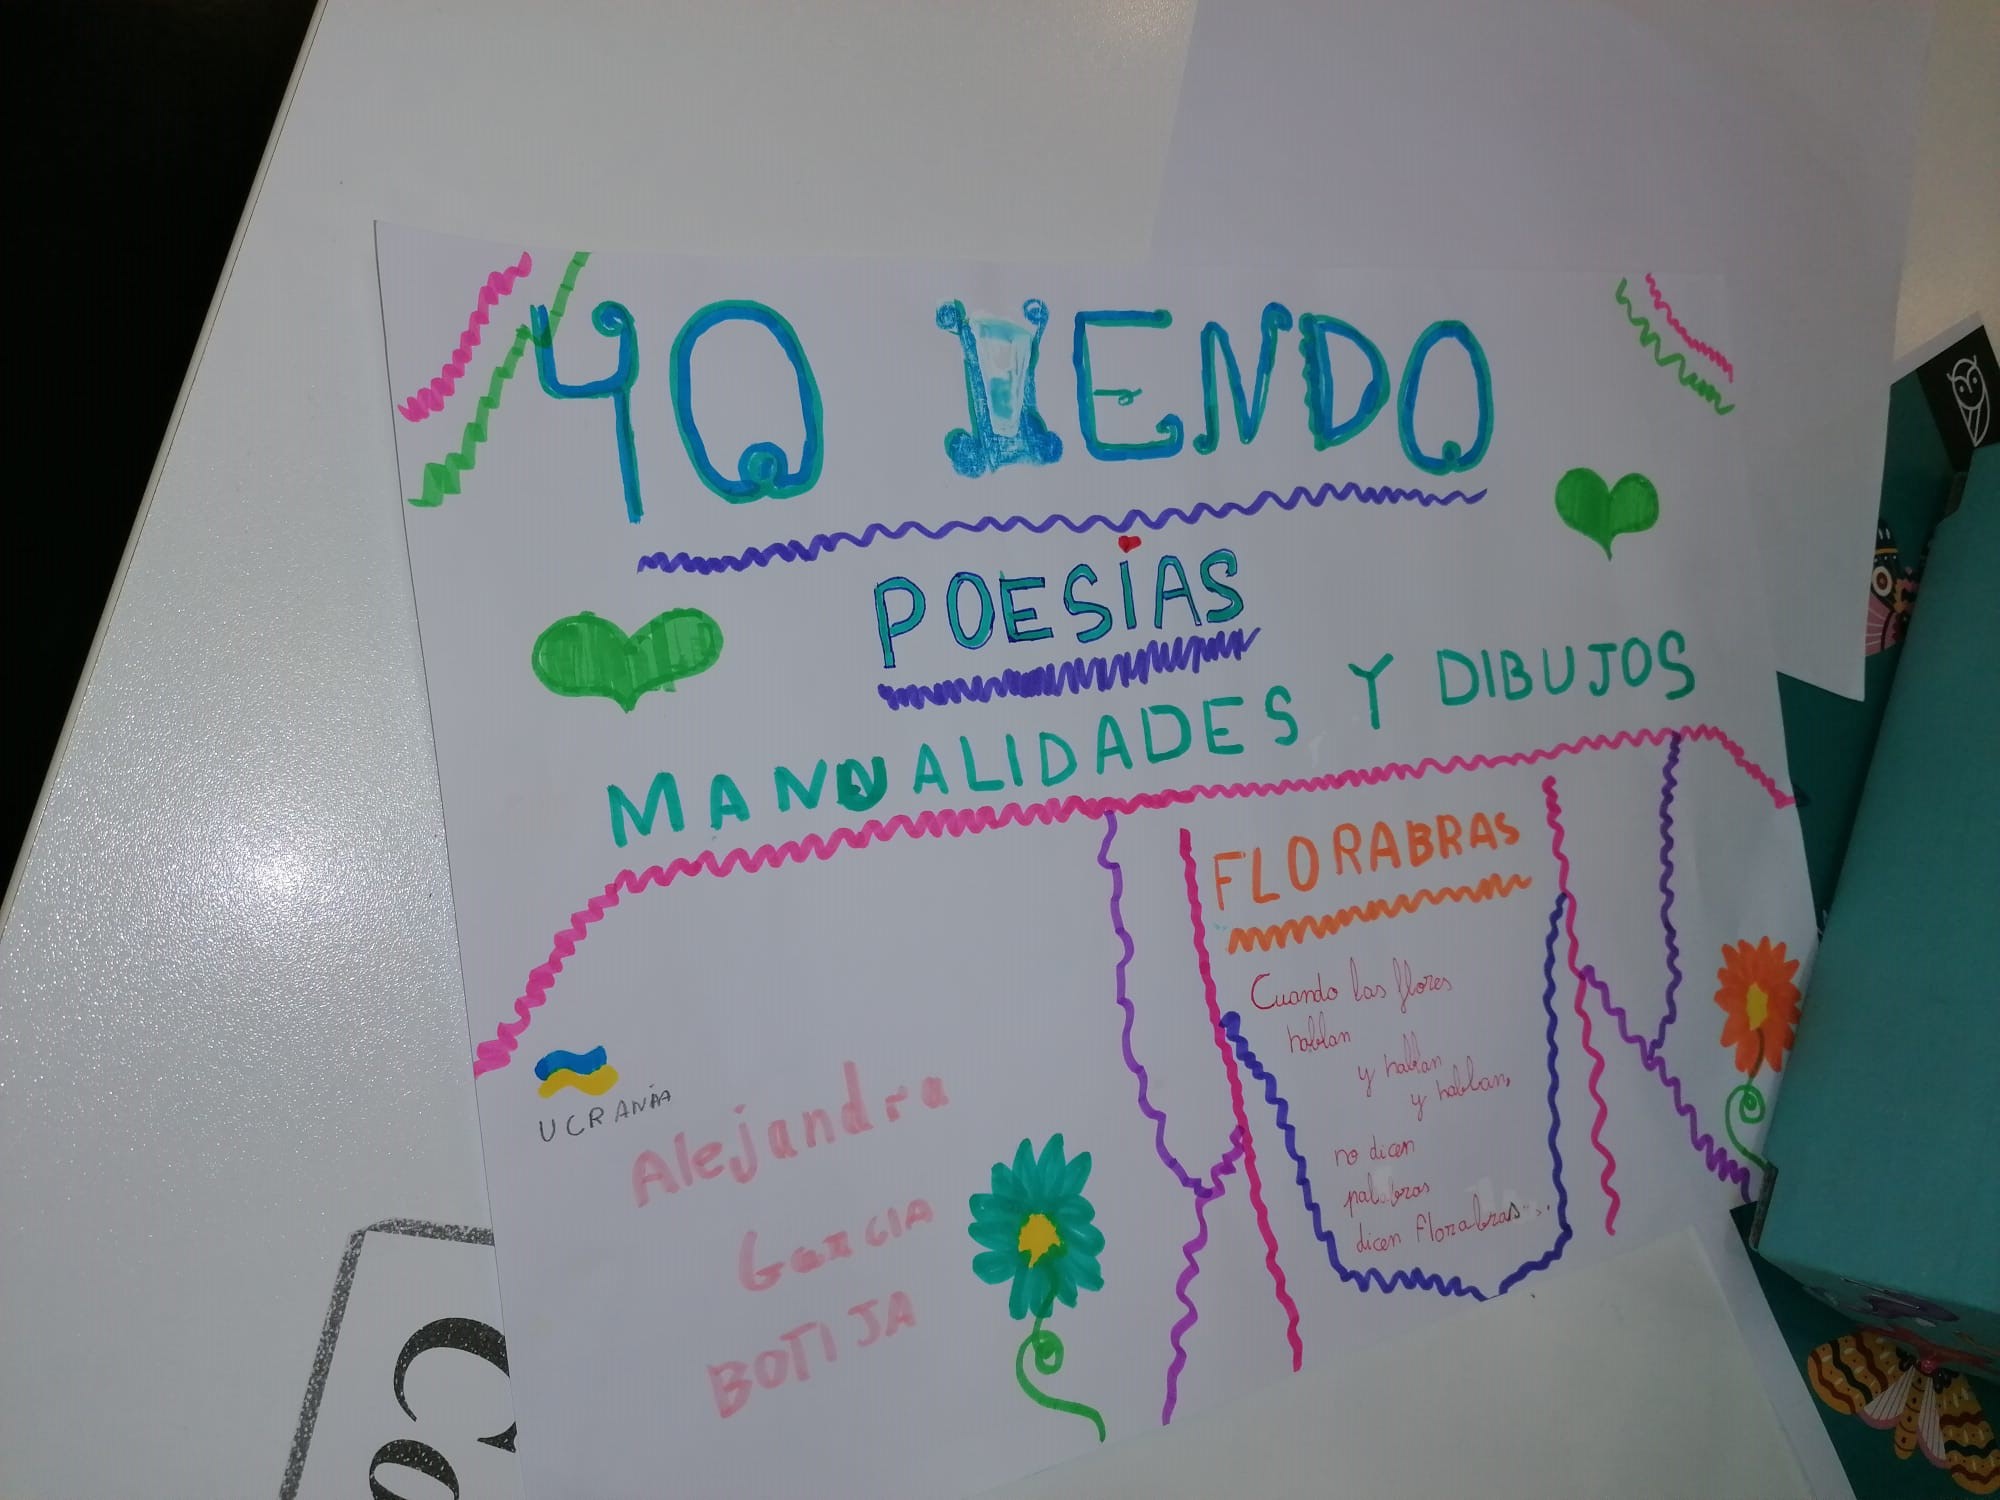 YO VENDO
POESIAS
MANUALIDADES Y DIBUJOS
FLORABRAS
Cuando las flores
hablan
y hablan
y hablan,
no dicen
palabras
dicen florabras....
UCRANIA
Alejandra
Garcia
BOTIJA
Co